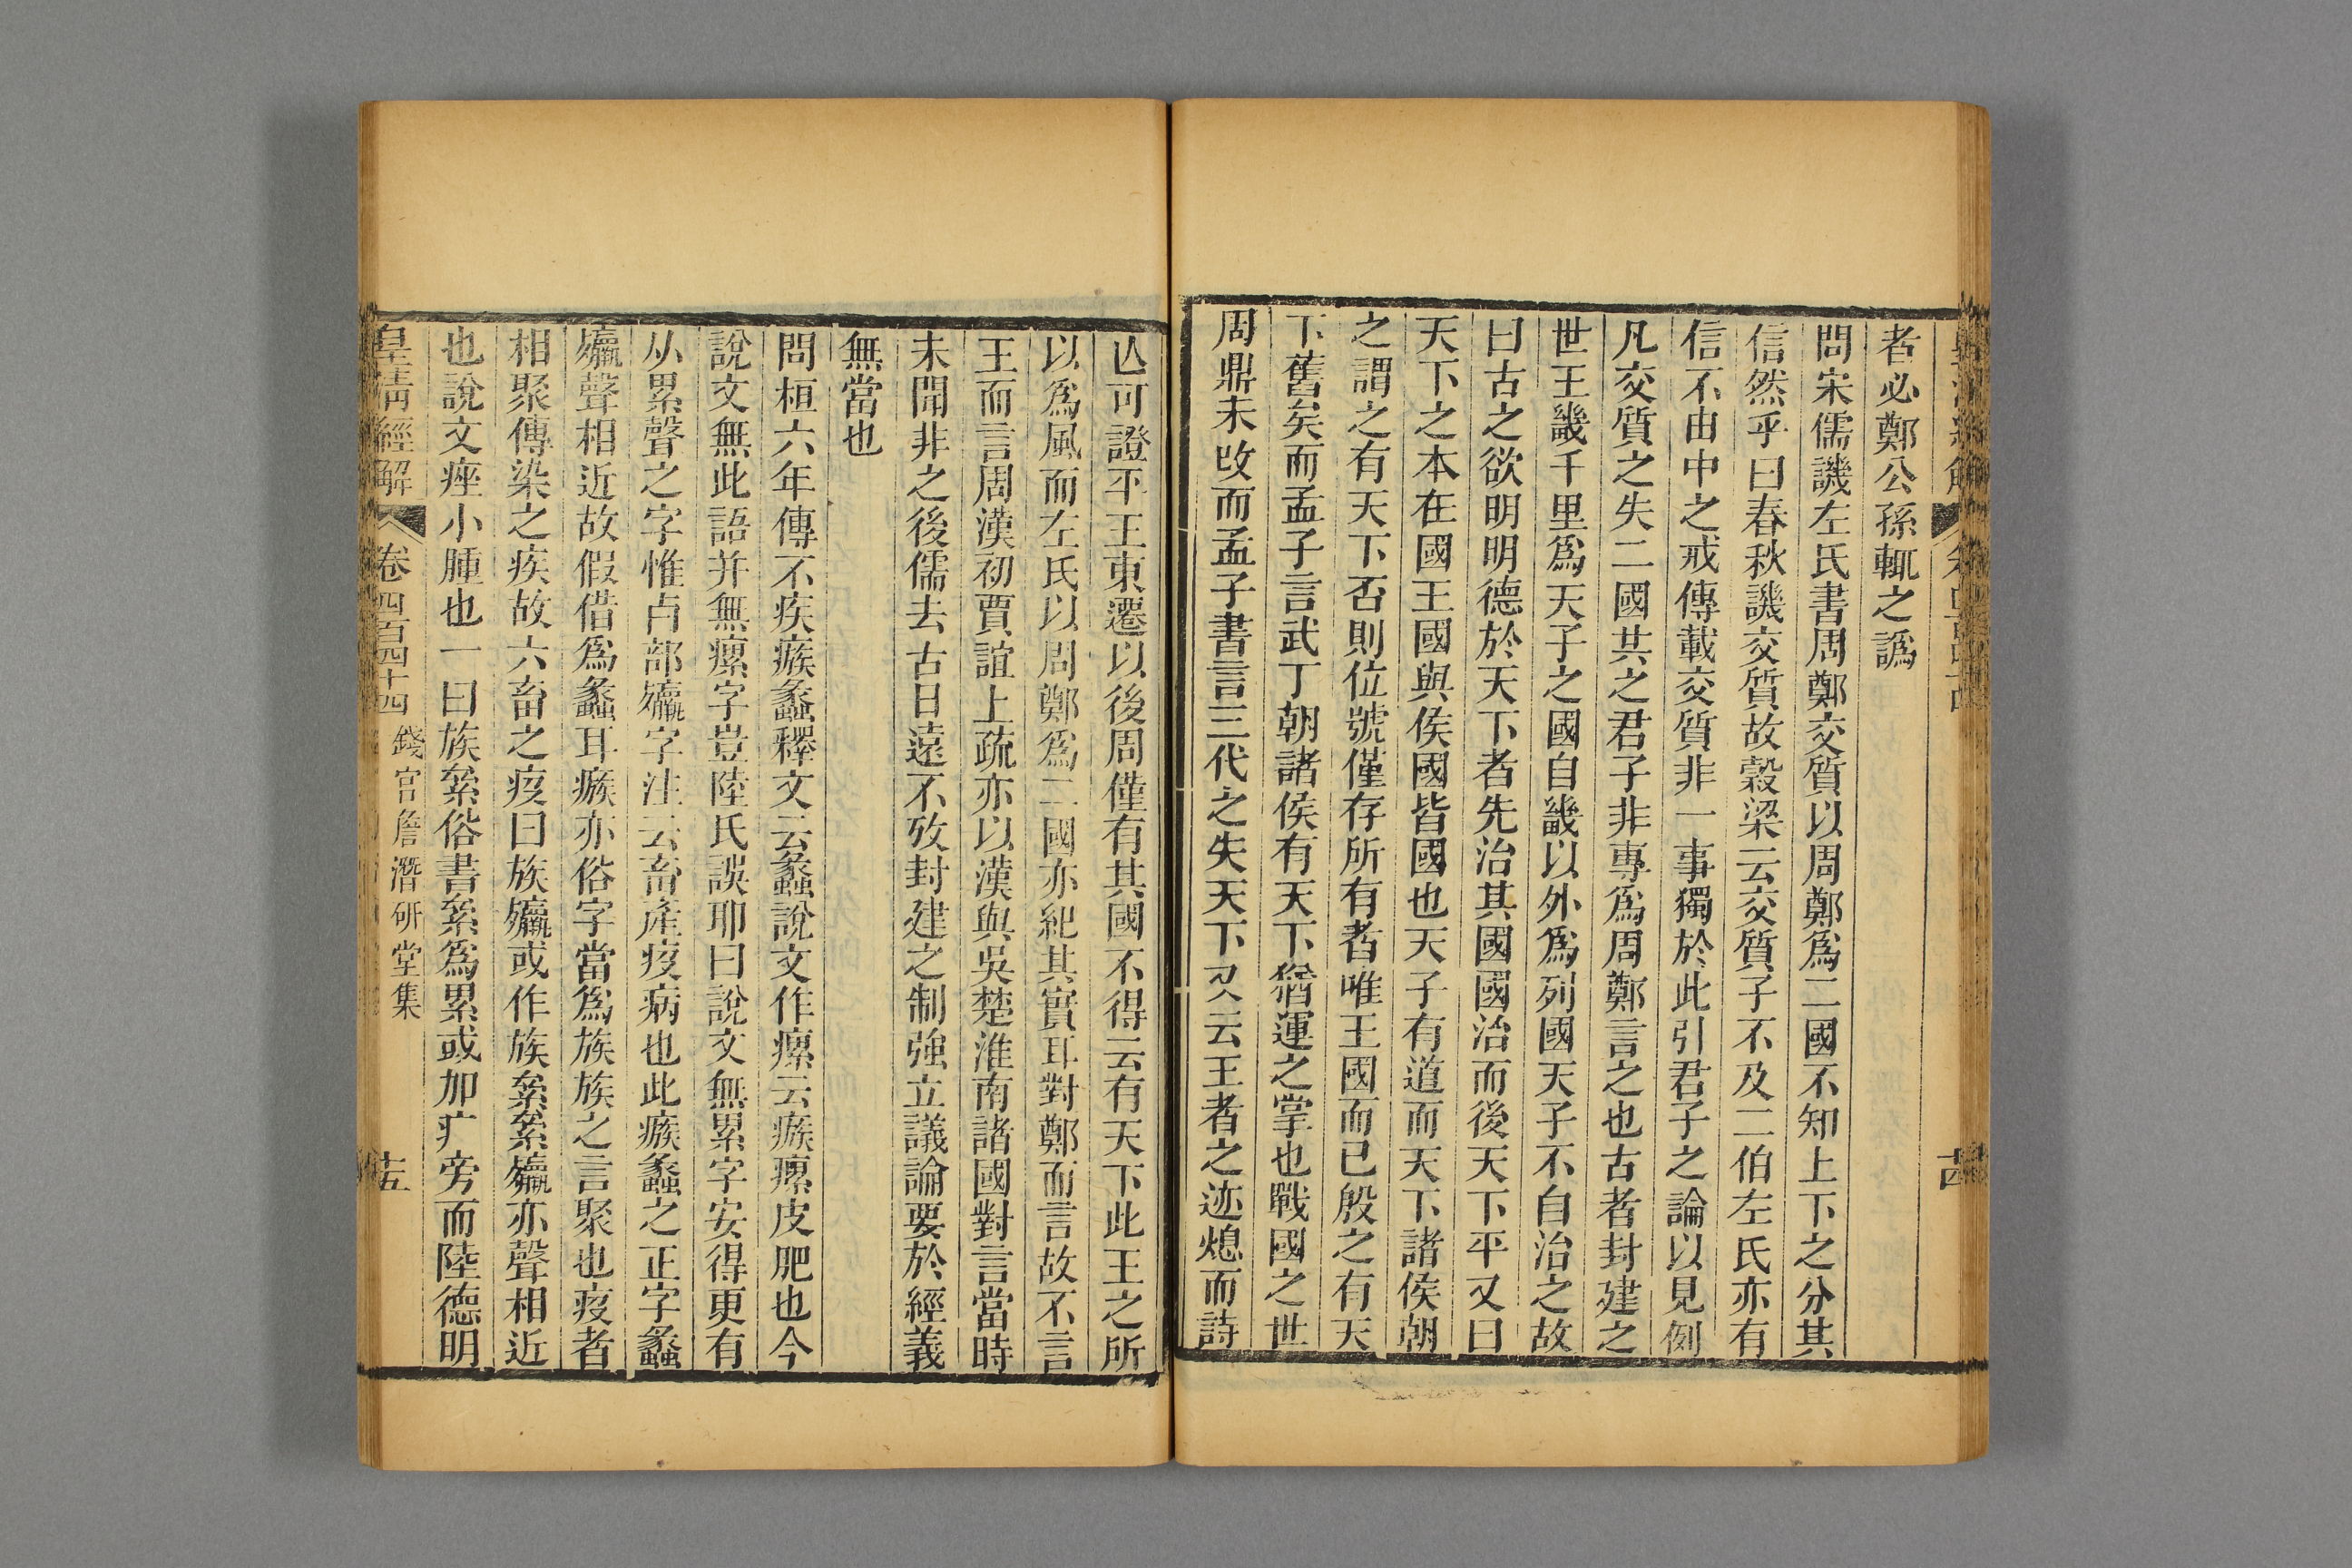 者必鄭公孫輒之譌
問宋儒譏左氏書周鄭交質以周鄭爲二國不知上下之分其
信然乎曰春秋譏交質故穀梁云交質子不及二伯左氏亦有
信不由中之戒傳載交質非一事獨於此引君子之論以見例
凡交質之失二國共之君子非專爲周鄭言之也古者封建之
世王畿千里爲天子之國自畿以外爲列國天子不自治之故
曰古之欲明明德於天下者先治其國國治而後天下平又曰
天下之本在國王國與侯國皆國也天子有道而天下諸侯朝
之謂之有天下否則位號僅存所有者唯王國而已殷之有天
下舊矣而孟子言武丁朝諸侯有天下猶運之掌也戰國之世
周鼎未改而孟子書言三代之失天下又云王者之迹熄而詩
亾可證平王東遷以後周僅有其國不得云有天下此王之所
以爲風而左氏以周鄭爲二國亦紀其實耳對鄭而言故不言
王而言周漢初賈誼上疏亦以漢與吳楚淮南諸國對言當時
未聞非之後儒去古日遠不攷封建之制強立議論要於經義
無當也
問桓六年傳不疾瘯蠡釋文云蠡說文作瘰云瘯瘰皮肥也今
說文無此語并無瘰字豈陸氏誤耶曰說文無累字安得更有
从累聲之字惟歺部㿖字注云畜產疫病也此瘯蠡之正字蠡
㿖聲相近故假借爲蠡耳瘯亦俗字當爲族族之言聚也疫者
相聚傳染之疾故六畜之疫曰族㿖或作族絫絫㿖亦聲相近
也說文痤小腫也一曰族絫俗書絫爲累或加疒旁而陸德明
皇清經解
卷四百四十四
錢宮詹潛研堂集
十五